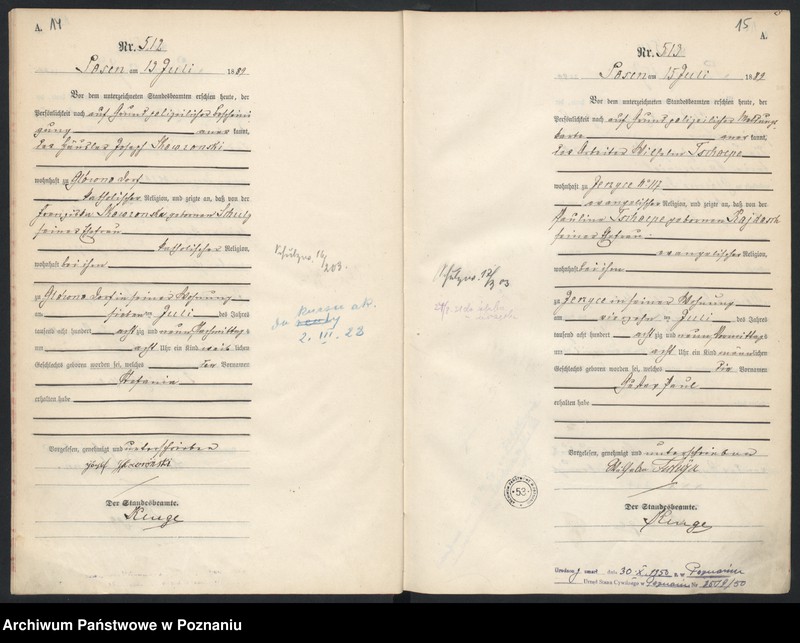 A. 14
Nr. 512
Posen am 13 Juli 1889
Vor dem unterzeichneten Standesbeamten erschien heute, der
Persönlichkeit nach auf Grund polizeilicher Beschein
gung anerkannt,
des Häusler Joseph
wohnhaft zu Glowno Dorf
katholischer Religion, und zeigte an, daß von der
Franziska geborenen Schulz
seiner Ehefrau
katholischer Religion,
wohnhaft bei ihm
zu Glowno Dorf in seiner Wohnung
am sieben ten Juli des Jahres
tausend acht hundert acht zig und neun Nachmittags
um acht Uhr ein Kind weib lichen
Geschlechts geboren worden sei, welches den Vornamen
Stefania
erhalten habe
Vorgelesen, genehmigt und unterschrieben
Józef
Der Standesbeamte.
Kluge
2. III. 23
15
A.
Nr. 513
Posen am 15 Juli 1889
Vor dem unterzeichneten Standesbeamten erschien heute, der
Persönlichkeit nach auf Grund polizeilicher Meldungs
karte anerkannt,
der Arbeiter Wilhelm Tschaepe
wohnhaft zu Jerzyce No 117
evangelischer Religion, und zeigte an, daß von der
Pauline Tschaepe geborenen
seiner Ehefrau
evangelischer Religion,
wohnhaft bei ihm
zu Jerzyce in seiner Wohnung
am vierzehn ten Juli des Jahres
tausend acht hundert acht zig und neun Vormittags
um acht Uhr ein Kind männlichen
Geschlechts geboren worden sei, welches die Vornamen
Paul
erhalten habe
Vorgelesen, genehmigt und unterschrieben
Wilhelm
Der Standesbeamte.
Kluge
53
dn. 30-X-1950 w Poznaniu
Urząd Stanu Cywilnego w Poznaniu Nr.
Archiwum Państwowe w Poznaniu